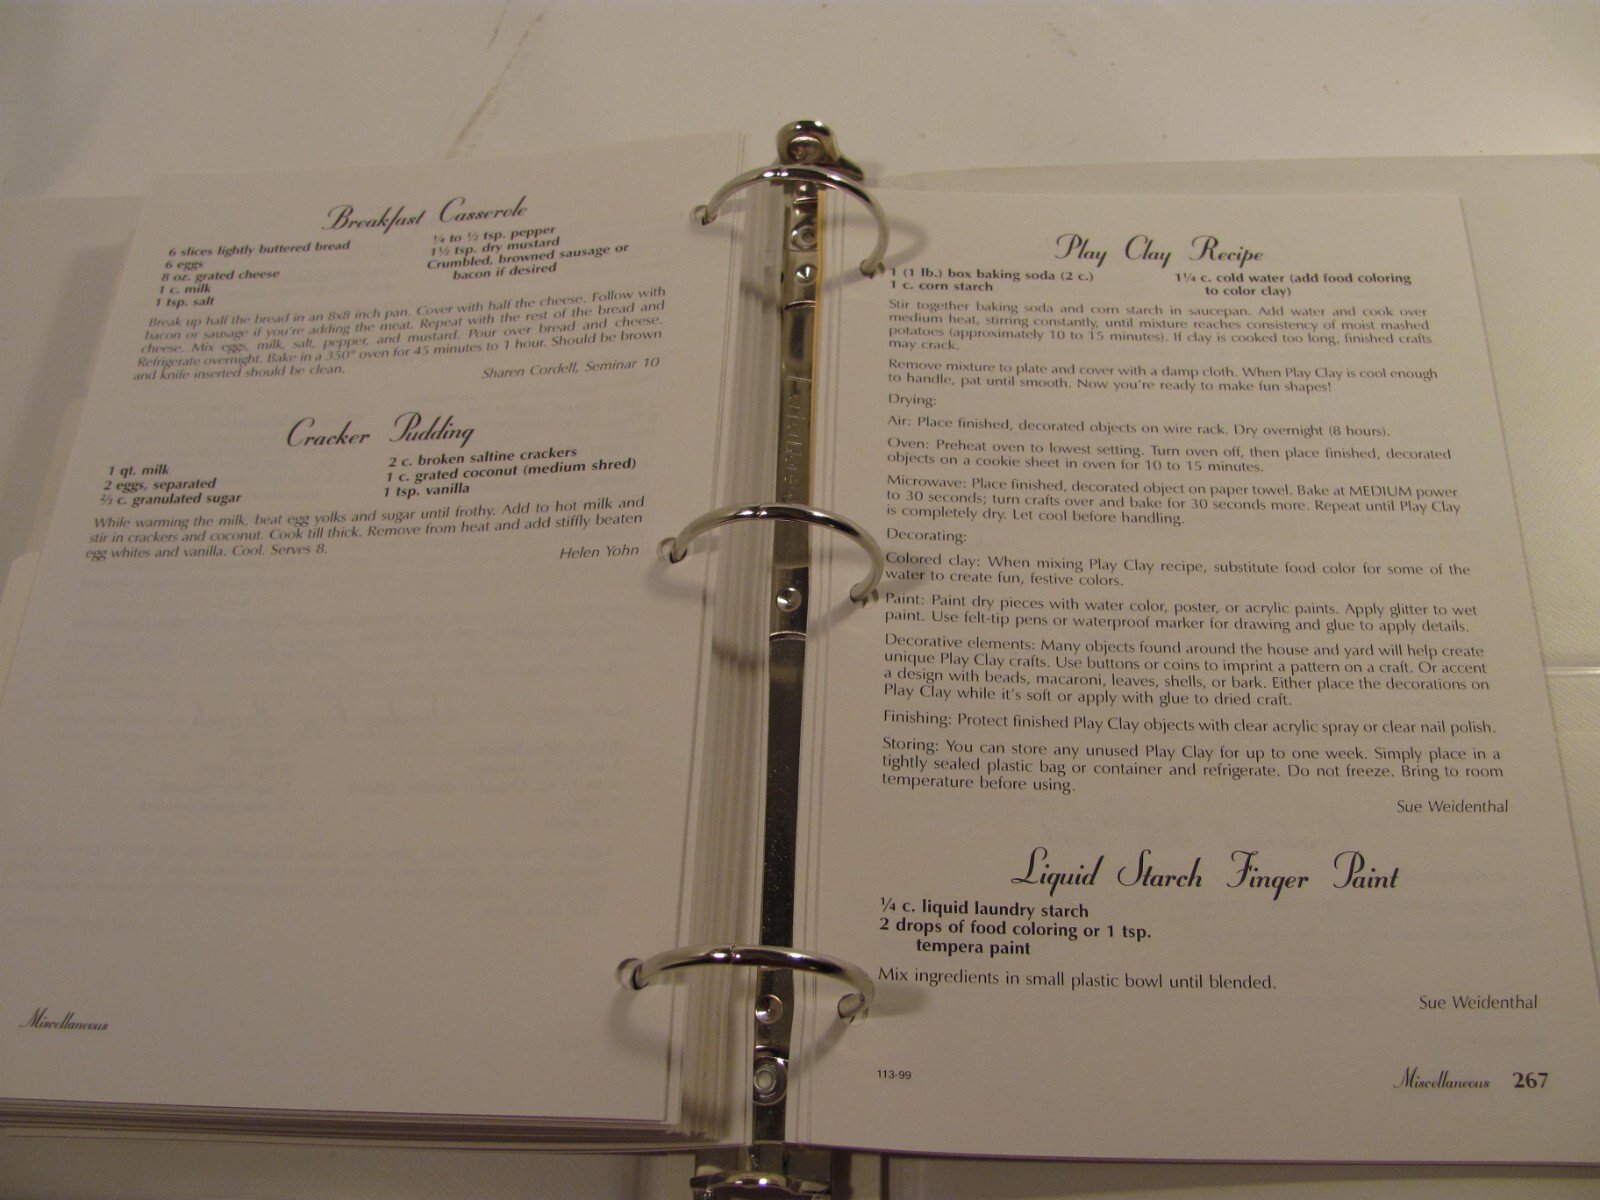 Breakfast Casserole
6 slices lightly buttered bread
6 eggs
8 oz. grated cheese
1 c. milk
1 tsp. salt
¼ to ½ tsp. pepper
1½ tsp. dry mustard
Crumbled, browned sausage or
bacon if desired
Break up half the bread in an 8x8 inch pan. Cover with half the cheese. Follow with
bacon or sausage if you're adding the meat. Repeat with the rest of the bread and
cheese. Mix eggs, milk, salt, pepper, and mustard. Pour over bread and cheese.
Refrigerate overnight. Bake in a 350° oven for 45 minutes to 1 hour. Should be brown
and knife inserted should be clean.
Sharen Cordell, Seminar 10
Cracker Pudding
1 qt. milk
2 eggs, separated
⅔ c. granulated sugar
2 c. broken saltine crackers
1 c. grated coconut (medium shred)
1 tsp. vanilla
While warming the milk, beat egg yolks and sugar until frothy. Add to hot milk and
stir in crackers and coconut. Cook till thick. Remove from heat and add stiffly beaten
egg whites and vanilla. Cool. Serves 8.
Helen Yohn
Miscellaneous
Play Clay Recipe
1 (1 lb.) box baking soda (2 c.)
1 c. corn starch
1¼ c. cold water (add food coloring
to color clay)
Stir together baking soda and corn starch in saucepan. Add water and cook over
medium heat, stirring constantly, until mixture reaches consistency of moist mashed
potatoes (approximately 10 to 15 minutes). If clay is cooked too long, finished crafts
may crack.
Remove mixture to plate and cover with a damp cloth. When Play Clay is cool enough
to handle, pat until smooth. Now you're ready to make fun shapes!
Drying:
Air: Place finished, decorated objects on wire rack. Dry overnight (8 hours).
Oven: Preheat oven to lowest setting. Turn oven off, then place finished, decorated
objects on a cookie sheet in oven for 10 to 15 minutes.
Microwave: Place finished, decorated object on paper towel. Bake at MEDIUM power
to 30 seconds; turn crafts over and bake for 30 seconds more. Repeat until Play Clay
is completely dry. Let cool before handling.
Decorating:
Colored clay: When mixing Play Clay recipe, substitute food color for some of the
water to create fun, festive colors.
Paint: Paint dry pieces with water color, poster, or acrylic paints. Apply glitter to wet
paint. Use felt-tip pens or waterproof marker for drawing and glue to apply details.
Decorative elements: Many objects found around the house and yard will help create
unique Play Clay crafts. Use buttons or coins to imprint a pattern on a craft. Or accent
a design with beads, macaroni, leaves, shells, or bark. Either place the decorations on
Play Clay while it's soft or apply with glue to dried craft.
Finishing: Protect finished Play Clay objects with clear acrylic spray or clear nail polish.
Storing: You can store any unused Play Clay for up to one week. Simply place in a
tightly sealed plastic bag or container and refrigerate. Do not freeze. Bring to room
temperature before using.
Sue Weidenthal
Liquid Starch Finger Paint
¼ c. liquid laundry starch
2 drops of food coloring or 1 tsp.
tempera paint
Mix ingredients in small plastic bowl until blended.
Sue Weidenthal
113-99
Miscellaneous 267